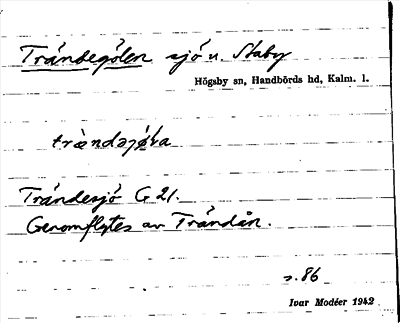 Trändegölen sjö u. Staby
Högsby sn, Handbörds hd, Kalm. l.
Trändesjö G 21.
Genomflytes av Trändån.
s. 86
Ivar Modéer 1942